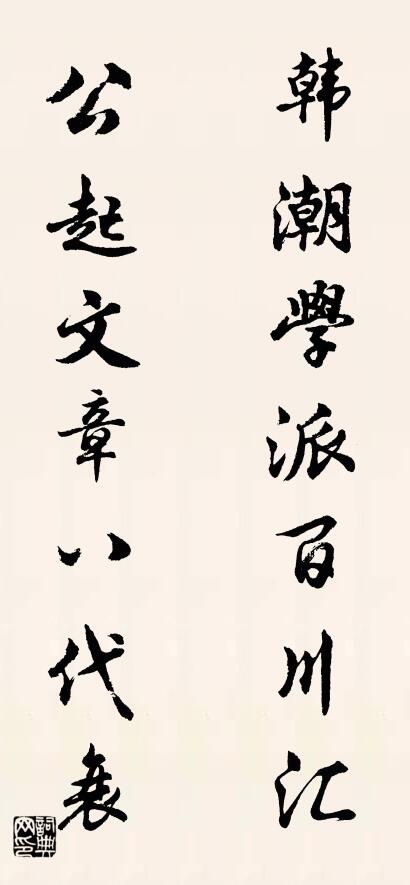 韩潮学派百川汇
公起文章八代衰
詞典网印